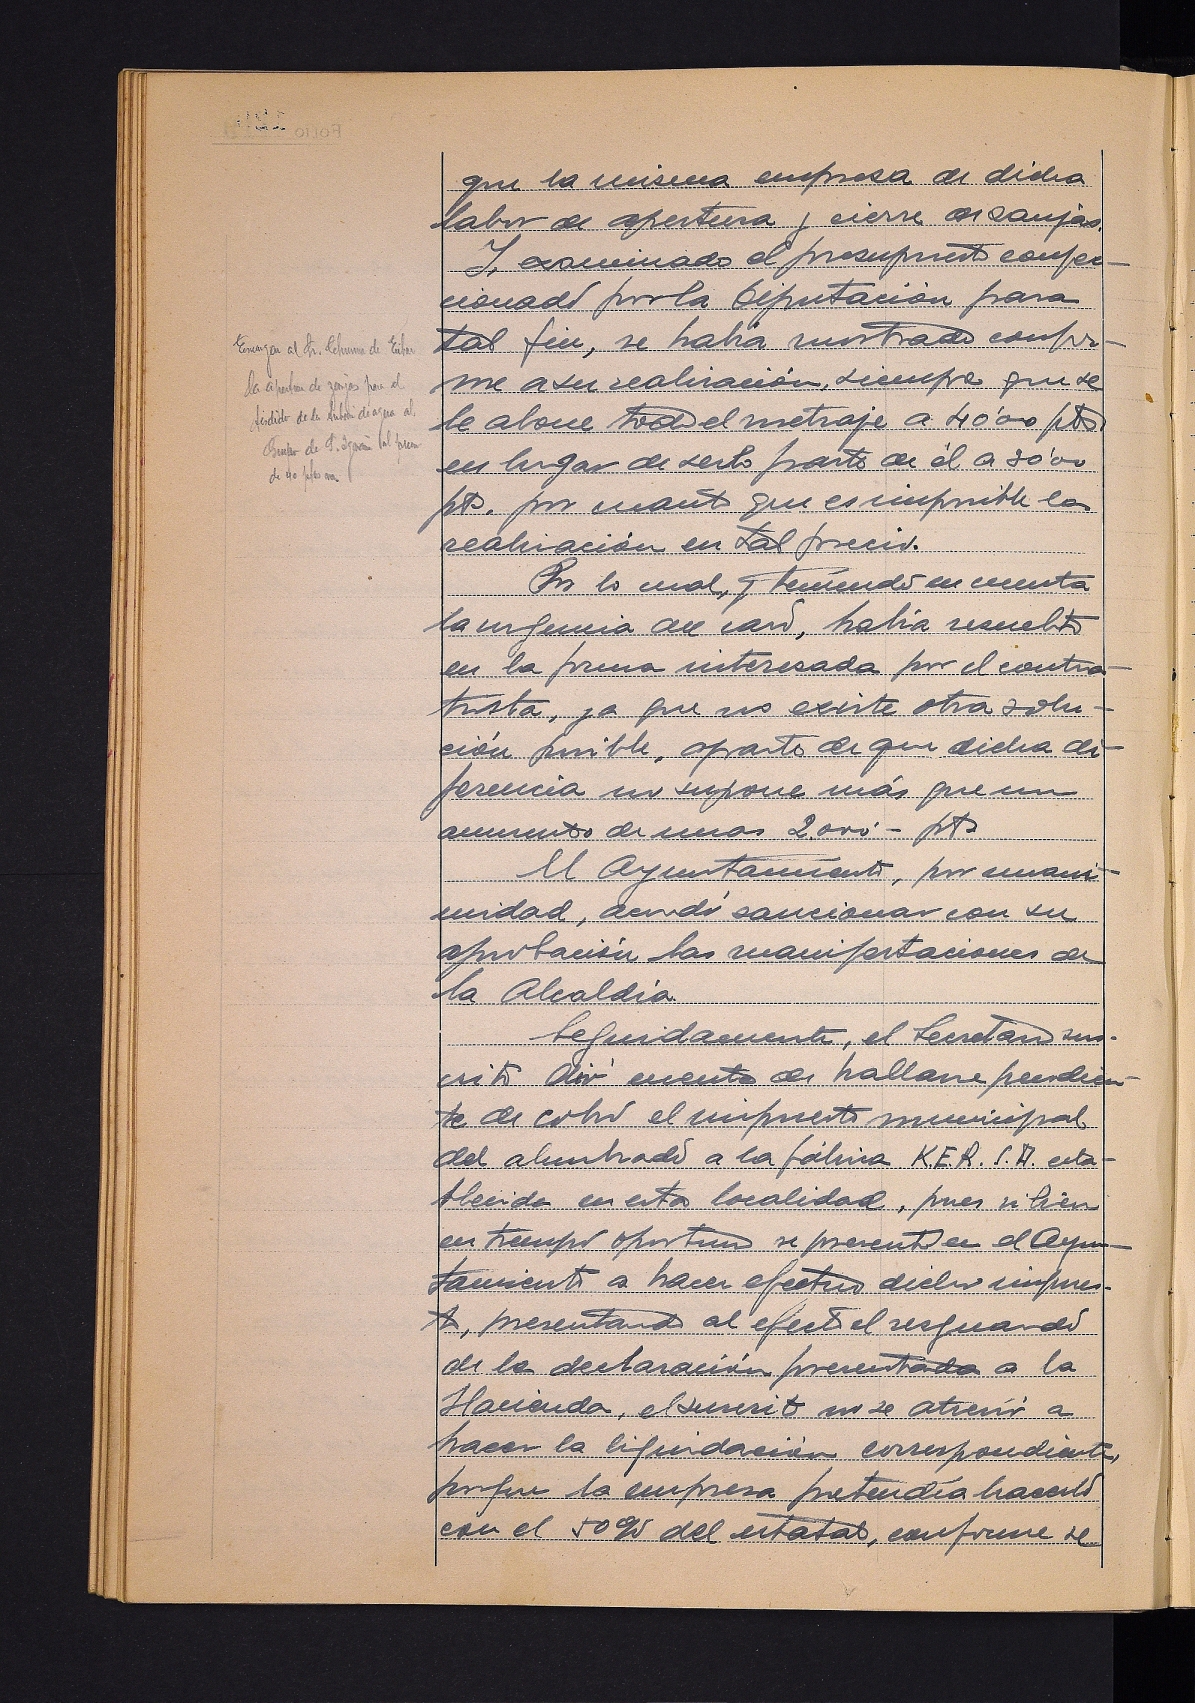 que la misma empresa de dicha
labor de apertura y cierre de zanjas.
Y, examinado el presupuesto confec-
cionado por la Diputación para
tal fin, se había mostrado confor-
me a su realización, siempre que se
le abone todo el metraje a 40'00 pts
en lugar de serlo parte de él a 30'00
pts. por cuanto que es imposible la
realización en tal precio.
Por lo cual, y teniendo en cuenta
la urgencia del caso, había resuelto
en la forma interesada por el contra-
tista, ya que no existe otra solu-
ción posible, aparte de que dicha di-
ferencia no supone más que un
aumento de unas 2.000'- pts
El Ayuntamiento, por unani-
midad, acordó sancionar con su
aprobación las manifestaciones de
la Alcaldía.
Seguidamente, el Secretario sus-
crito dió cuenta de hallarse pendien-
te de cobro el impuesto municipal
del alumbrado a la fábrica K.E.R. S.A. esta-
blecida en esta localidad, pues si bien
en tiempo oportuno se presentó en el Ayun-
tamiento a hacer efectivo dicho impues-
to, presentando al efecto el resguardo
de la declaración presentada a la
Hacienda, el suscrito no se atrevió a
hacer la liquidación correspondiente,
porque la empresa pretendía hacerlo
con el 50% del estatal, conforme se
Encargar al Sr. de Eibar
la apertura de zanjas para el
tendido de la tubería de agua al
Barrio de S. Ignacio al precio
de 40 ptas
FOLIO